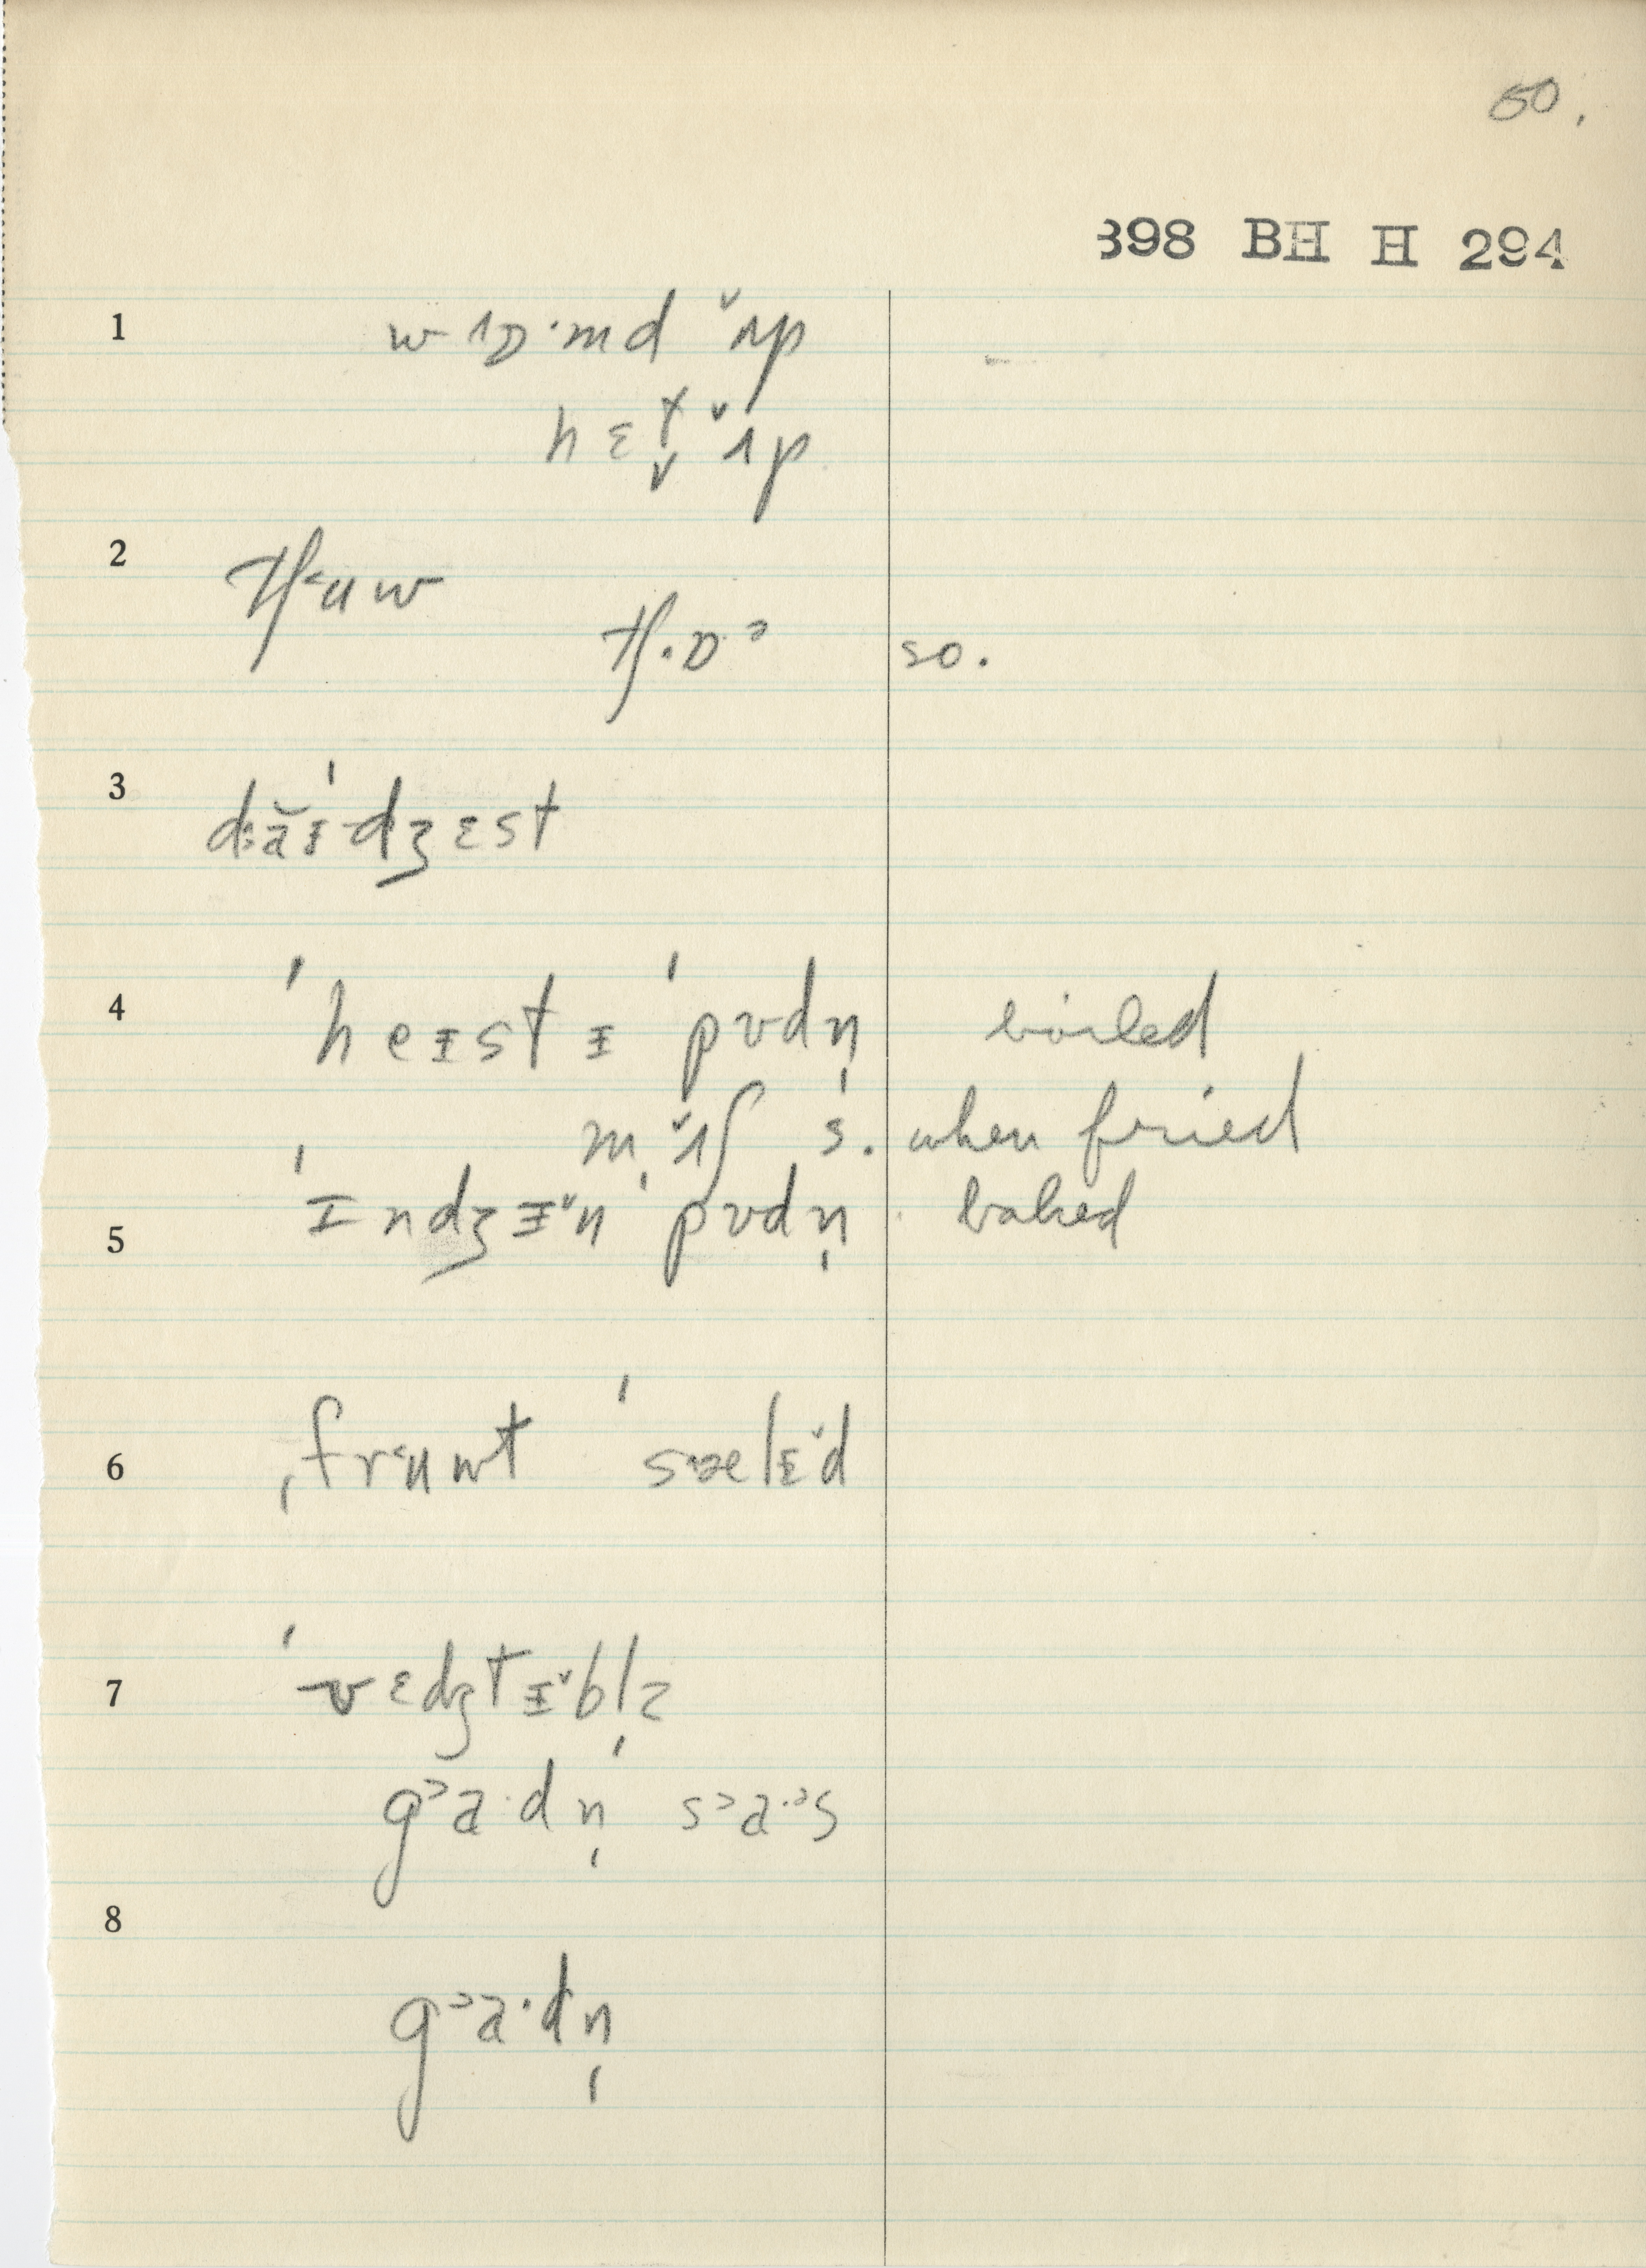 50.
398 BH H 294
1 wɒ·md ʌ̆p
hɛt̬ ʌ̆p
2 tʃ˂ʉw
tʃ·ɒ·ᵊ so.
3 dăɪ'dʒɛst
4 'heɪstɪ 'pʊdn̩ boiled
mʌ̆ʃ s. when fried
5 'ɪndʒɪ̆n 'pʊdn̩ baked
6 ˌfr˂ʉwt 'sæləd
7 'vɛdʒtɪ̆bl̩z
g˃a·dn̩ 's˃a·ᵊs
8
g˃a·dn̩